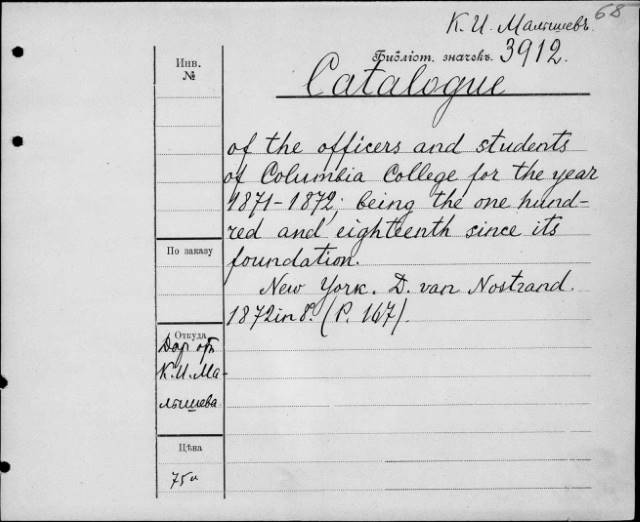 68
К. И. Малышевъ.
Инв.
№
Библіот. значекъ. 3912.
Catalogue
of the officers and students
of Columbia College for the year
1871-1872; being the one hund-
red and eighteenth since its
foundation.
По заказу
New York. D. van Nostrand.
1872 in 8°. (P. 167).
Откуда
Дар отъ
К. И. Ма-
лышева
Цѣна
75